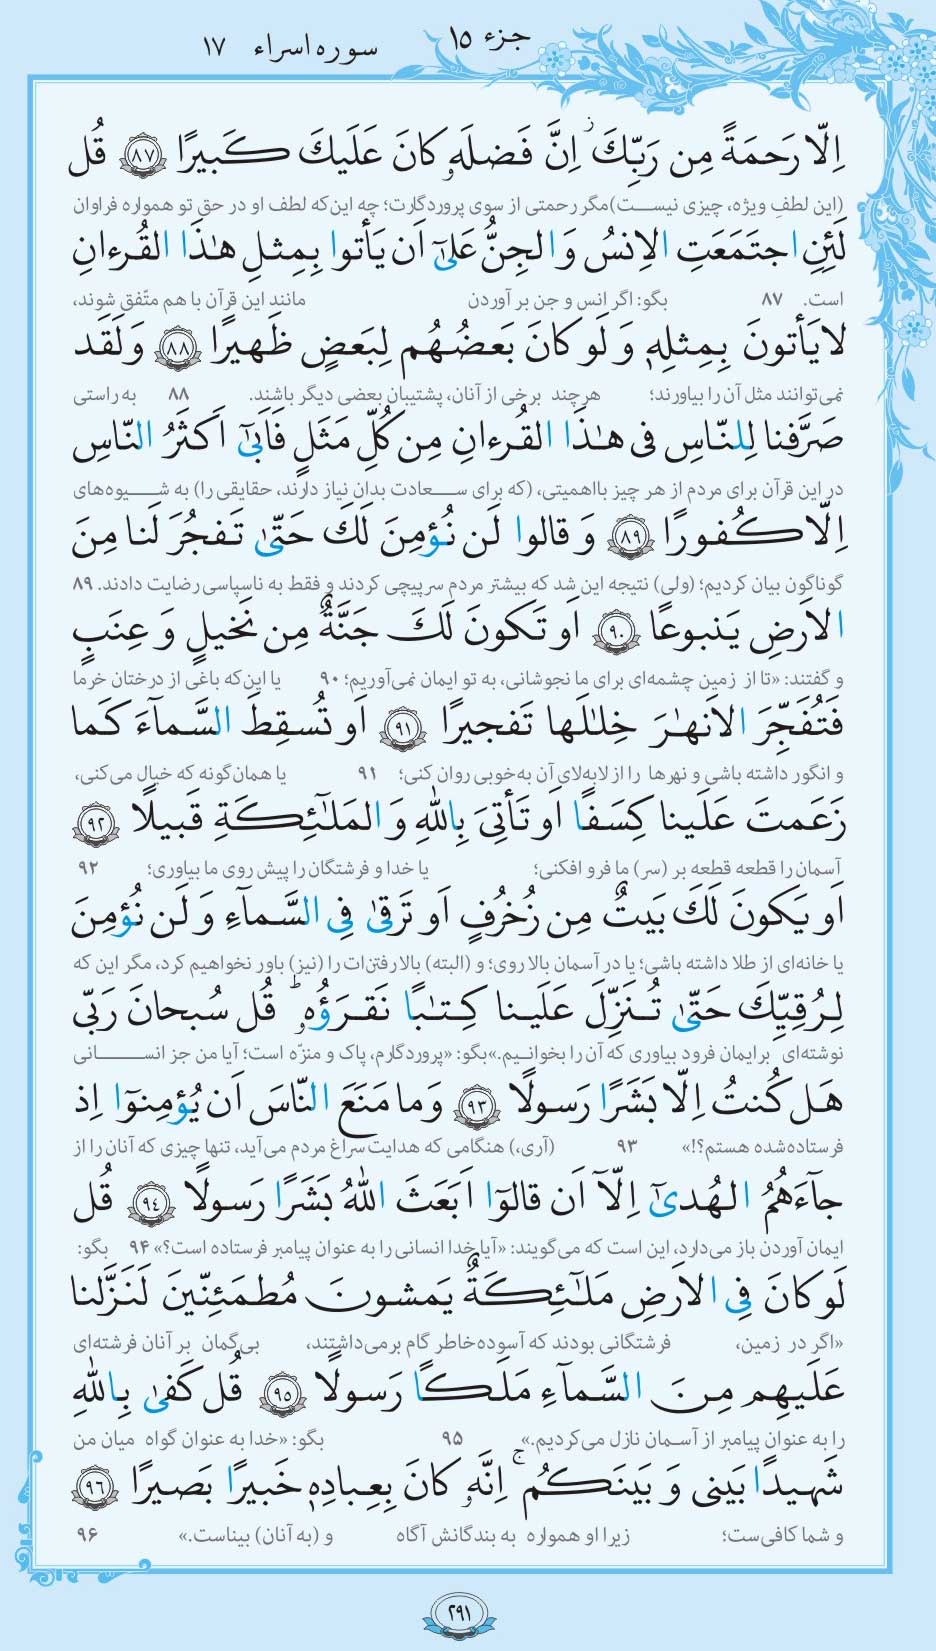 جزء ١٥ سوره اسراء ١٧
اِلّا رَحمَةً مِن رَبِّكَ ۚ اِنَّ فَضلَه‌و كانَ عَلَيكَ كَبيرًا ﴿٨٧﴾ قُل
(این لطفِ ویژه، چیزی نیست) مگر رحمتی از سوی پروردگارت؛ چه این‌که لطف او در حق تو همواره فراوان
لَئِنِ اجتَمَعَتِ الاِنسُ وَ الجِنُّ عَلىٰٓ اَن يَأتوا بِمِثلِ هٰذَا القُرءانِ
است. ۸۷ بگو: اگر انس و جن بر آوردن مانند این قرآن با هم متّفق شوند،
لايَأتونَ بِمِثلِه‌ی وَ لَو كانَ بَعضُهُم لِبَعضٍ ظَهيرًا ﴿٨٨﴾ وَ لَقَد
نمی‌توانند مثل آن را بیاورند؛ هرچند برخی از آنان، پشتیبان بعضی دیگر باشند. ۸۸ به راستی
صَرَّفنا لِلنّاسِ فی هٰذَا القُرءانِ مِن كُلِّ مَثَلٍ فَاَبىٰٓ اَكثَرُ النّاسِ
در این قرآن برای مردم از هر چیز بااهمیتی، (که برای سعادت بدان نیاز دارند، حقایقی را) به شیوه‌های
اِلّا كُفورًا ﴿٨٩﴾ وَ قالوا لَن نُؤمِنَ لَكَ حَتّىٰ تَفجُرَ لَنا مِنَ
گوناگون بیان کردیم؛ (ولی) نتیجه این شد که بیشتر مردم سرپیچی کردند و فقط به ناسپاسی رضایت دادند. ۸۹
الاَرضِ يَنبوعًا ﴿٩٠﴾ اَو تَكونَ لَكَ جَنَّةٌ مِن نَخيلٍ وَ عِنَبٍ
و گفتند: «تا از زمین چشمه‌ای برای ما نجوشانی، به تو ایمان نمی‌آوریم؛ ۹۰ یا این‌که باغی از درختان خرما
فَتُفَجِّرَ الاَنهٰرَ خِلٰلَها تَفجيرًا ﴿٩١﴾ اَو تُسقِطَ السَّمآءَ كَما
و انگور داشته باشی و نهرها را از لابه‌لای آن به‌خوبی روان کنی؛ ۹۱ یا همان‌گونه که خیال می‌کنی،
زَعَمتَ عَلَينا كِسَفًا اَو تَأتِیَ بِاللّٰهِ وَ المَلٰٓئِكَةِ قَبيلًا ﴿٩٢﴾
آسمان را قطعه قطعه بر (سر) ما فرو افکنی؛ یا خدا و فرشتگان را پیش روی ما بیاوری؛ ۹۲
اَو يَكونَ لَكَ بَيتٌ مِن زُخرُفٍ اَو تَرقىٰ فِی السَّمآءِ وَ لَن نُؤمِنَ
یا خانه‌ای از طلا داشته باشی؛ یا در آسمان بالا روی؛ و (البته) بالا رفتن‌ات را (نیز) باور نخواهیم کرد، مگر این که
لِرُقِيِّكَ حَتّىٰ تُنَزِّلَ عَلَينا كِتٰبًا نَقرَؤُه‌و ۗ قُل سُبحانَ رَبّی
نوشته‌ای برایمان فرود بیاوری که آن را بخوانیم.» بگو: «پروردگارم، پاک و منزّه است؛ آیا من جز انسانی
هَل كُنتُ اِلّا بَشَرًا رَسولًا ﴿٩٣﴾ وَ ما مَنَعَ النّاسَ اَن يُؤمِنوٓا اِذ
فرستاده‌شده هستم؟!» ۹۳ (آری،) هنگامی که هدایت سراغ مردم می‌آید، تنها چیزی که آنان را از
جآءَهُمُ الهُدىٰٓ اِلّآ اَن قالوٓا اَبَعَثَ اللّٰهُ بَشَرًا رَسولًا ﴿٩٤﴾ قُل
ایمان آوردن باز می‌دارد، این است که می‌گویند: «آیا خدا انسانی را به عنوان پیامبر فرستاده است؟» ۹۴ بگو:
لَو كانَ فِی الاَرضِ مَلٰٓئِكَةٌ يَمشونَ مُطمَئِنّينَ لَنَزَّلنا
«اگر در زمین، فرشتگانی بودند که آسوده‌خاطر گام برمی‌داشتند، بی‌گمان بر آنان فرشته‌ای
عَلَيهِم مِنَ السَّمآءِ مَلَكًا رَسولًا ﴿٩٥﴾ قُل كَفىٰ بِاللّٰهِ
را به عنوان پیامبر از آسمان نازل می‌کردیم.» ۹۵ بگو: «خدا به عنوان گواه میان من
شَهيدًا بَينی وَ بَينَكُم ۚ اِنَّه‌و كانَ بِعِبادِه‌ی خَبيرًا بَصيرًا ﴿٩٦﴾
و شما کافی‌ست؛ زیرا او همواره به بندگانش آگاه و (به آنان) بیناست.» ۹۶
٢٩١